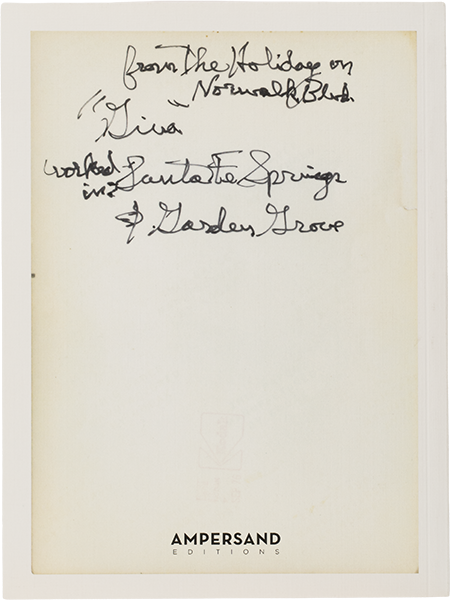 from The Holiday on
Norwalk Blvd.
"Gina"
worked
in: Santa Fe Springs
& Garden Grove
AMPERSAND
EDITIONS